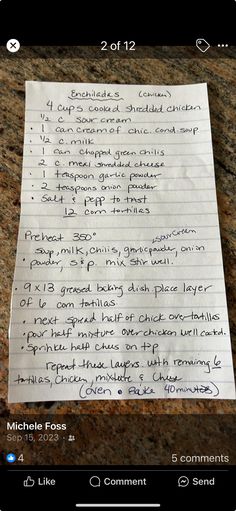 2 of 12
Enchiladas (chicken)
4 cups cooked shredded chicken
1/2 c sour cream
1 can cream of chic. cond. soup
1/2 c. milk
1 can chopped green chilis
2 c. mexi shredded cheese
1 teaspoon garlic powder
2 teaspoons onion powder
Salt & pepp to tast
12 corn tortillas
Preheat 350°
sour cream
Soup, milk, chilis, garlic powder, onion
powder, s & p. mix stir well.
9 x 13 greased baking dish place layer
of 6 corn tortillas
next spread half of chick over tortillas
pour half mixture over chicken well coatd.
Sprinkle half chees on top
repeat these layers with remaining 6
tortillas, chicken, mixture & Chese
(oven • Bake 40 minutes)
Michele Foss
Sep 15, 2023 ·
4
5 comments
Like Comment Send